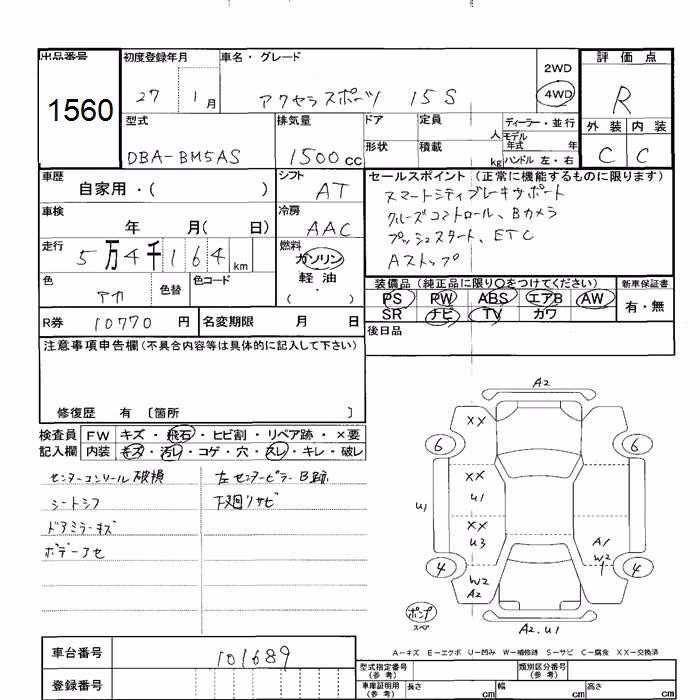 出品番号 初度登録年月 車名・グレード 2WD 評価点
1560 27 1月 アクセラスポーツ 15S 4WD R
型式 排気量 ドア 定員 人 ディーラー・並行 外装 内装
DBA-BM5AS 1500cc 形状 積載 kg モデル年式 年 ハンドル 左・右 C C
車歴 シフト セールスポイント (正常に機能するものに限ります)
自家用・( ) AT スマートシティブレーキサポート
車検 冷房 クルーズコントロール、Bカメラ
年 月( 日) AAC プッシュスタート、ETC
走行 燃料 Aストップ
5万4千164km ガソリン
色 色替 色コード 軽油 装備品 (純正品に限り○をつけてください) 新車保証書
アカ ( ・ ) PS PW ABS エアB AW 有・無
R券 10770円 名変期限 月 日 SR ナビ TV カワ
後日品
注意事項申告欄(不具合内容等は具体的に記入して下さい)
修復歴 有 〔箇所 〕
A2
XX
6 6
検査員 FW キズ・飛石・ヒビ割・リペア跡・×要
記入欄 内装 キズ・汚レ・コゲ・穴・スレ・キレ・破レ
センターコンソール破損 左センターピラーB跡
XX
U1 U1
シートシワ 下廻リサビ
ドアミラーキズ
XX
U3 A1
ボデーアセ
W2
1
4 4
W2
A2
ポンプ
スペア A2.U1
A−キズ E−エクボ U−凹み W−補修跡 S−サビ C−腐食 XX−交換済
車台番号 101689
型式指定番号(参考) 類別区分番号(参考)
登録番号 車庫証明用(参考) 長さ cm 幅 cm 高さ cm